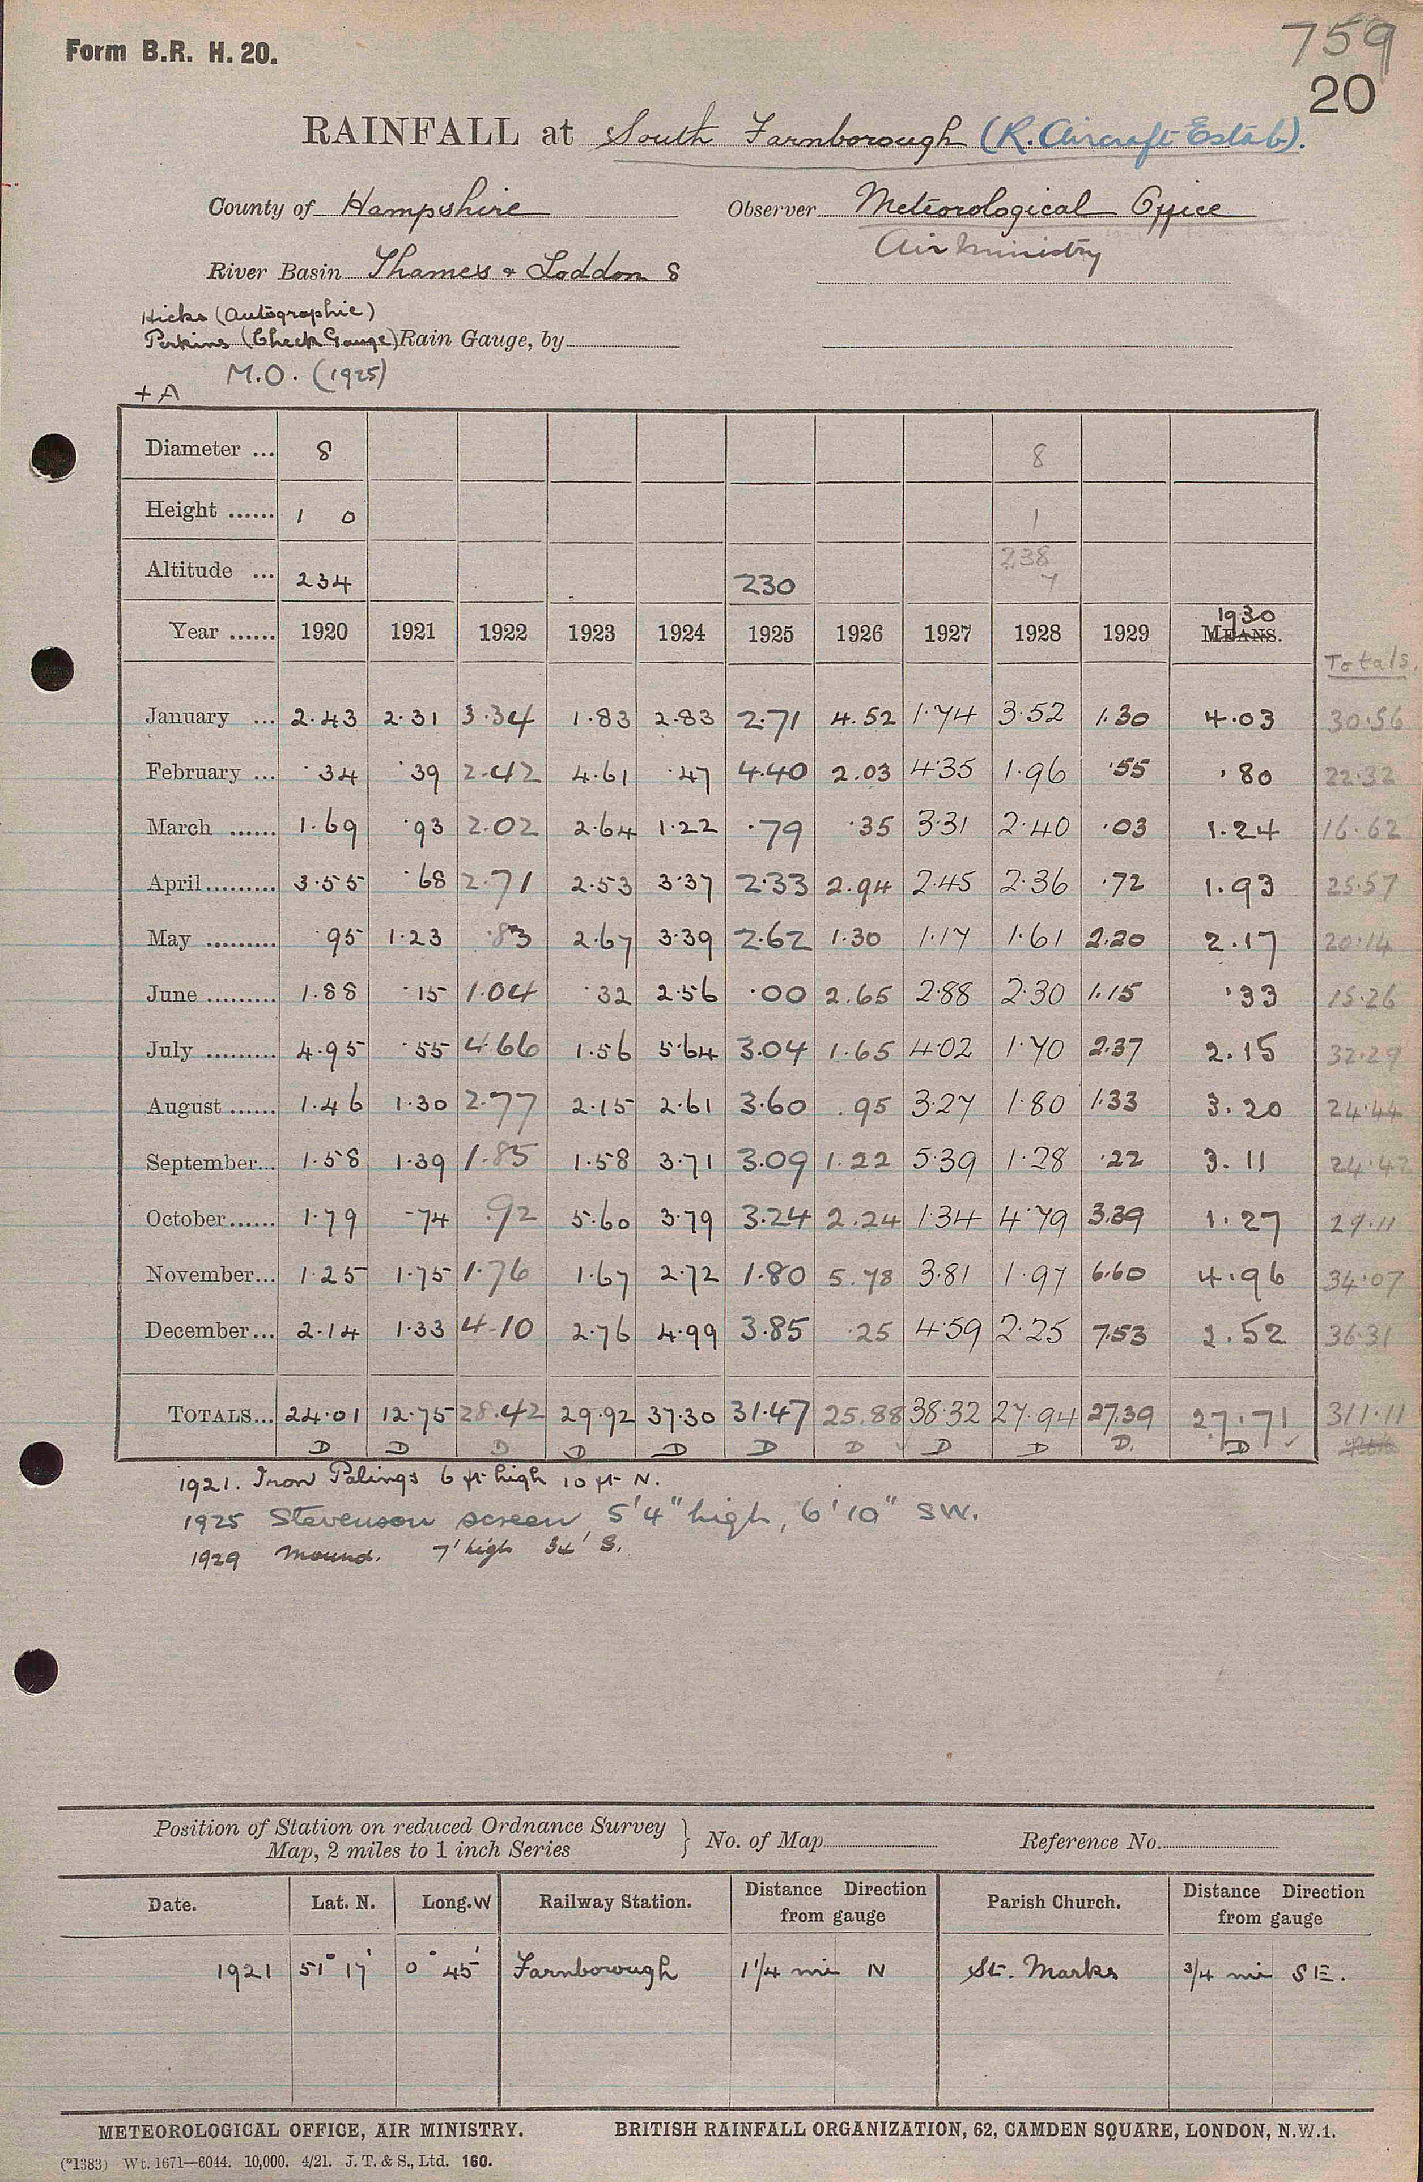 759
Form B.R. H. 20.
20
RAINFALL at South Farnborough (R. Aircraft Estab).
County of Hampshire Observer Meteorological Office
Air Ministry
River Basin Thames & Loddon 8
Hicks (Autographic)
Perkins (Check Gauge) Rain Gauge, by
M.O. (1925)
+ A
Diameter ... 8 8
Height ...... 1 0 1
Altitude ... 234 230 238
7
Year ...... 1920 1921 1922 1923 1924 1925 1926 1927 1928 1929 1930 MEANS.
Totals
January ... 2.43 2.31 3.34 1.83 2.83 2.71 4.52 1.74 3.52 1.30 4.03 30.56
February ... .34 .39 2.42 4.61 .47 4.40 2.03 4.35 1.96 .55 .80 22.32
March ...... 1.69 .93 2.02 2.64 1.22 .79 .35 3.31 2.40 .03 1.24 16.62
April ......... 3.55 .68 2.71 2.53 3.37 2.33 2.94 2.45 2.36 .72 1.93 25.57
May ......... .95 1.23 .83 2.67 3.39 2.62 1.30 1.17 1.61 2.20 2.17 20.14
June ......... 1.88 .15 1.04 .32 2.56 .00 2.65 2.88 2.30 1.15 .33 15.26
July ......... 4.95 .55 4.66 1.56 5.64 3.04 1.65 4.02 1.70 2.37 2.15 32.29
August ...... 1.46 1.30 2.77 2.15 2.61 3.60 .95 3.27 1.80 1.33 3.20 24.44
September... 1.58 1.39 1.85 1.58 3.71 3.09 1.22 5.39 1.28 .22 3.11 24.42
October...... 1.79 .74 .92 5.60 3.79 3.24 2.24 1.34 4.79 3.39 1.27 29.11
November... 1.25 1.75 1.76 1.67 2.72 1.80 5.78 3.81 1.97 6.60 4.96 34.07
December... 2.14 1.33 4.10 2.76 4.99 3.85 .25 4.59 2.25 7.53 2.52 36.31
TOTALS... 24.01 12.75 28.42 29.92 37.30 31.47 25.88 38.32 27.94 27.39 27.71 311.11
D D D D D D D D D D. D
1921. Iron Palings 6 ft high 10 ft N.
1925 Stevenson screen 5'4" high, 6'10" SW.
1929 Mound. 7' high 34' S.
Position of Station on reduced Ordnance Survey
Map, 2 miles to 1 inch Series } No. of Map Reference No.
Date. Lat. N. Long. W Railway Station. Distance Direction from gauge Parish Church. Distance Direction from gauge
1921 51° 17' 0° 45' Farnborough 1 1/4 mi N St. Marks 3/4 mi SE.
METEOROLOGICAL OFFICE, AIR MINISTRY. BRITISH RAINFALL ORGANIZATION, 62, CAMDEN SQUARE, LONDON, N.W.1.
(*1383) Wt. 1671—6044. 10,000. 4/21. J. T. & S., Ltd. 160.